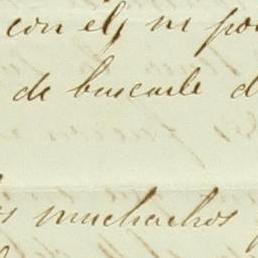 con el, ni po
de buscarle d
s muchachos